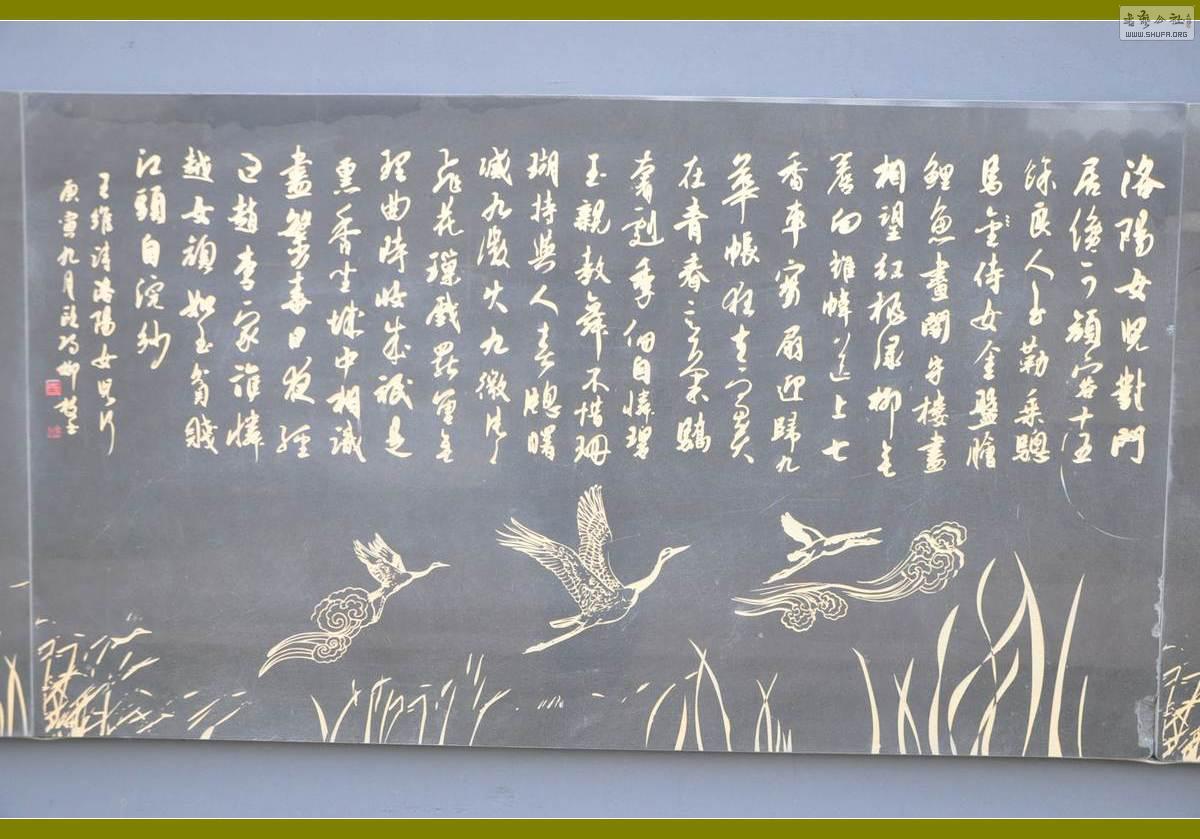 洛陽女兒對門
居纔可顏容十五
餘良人玉勒乘驄
馬侍女金盤膾
鯉魚畫閣朱樓盡
相望紅桃綠柳垂
簷向羅幃送上七
香車寶扇迎歸九
華帳狂夫富貴
在青春意氣驕
奢劇季倫自憐碧
玉親教舞不惜珊
瑚持與人春牕曙
滅九微火九微片片
飛花璅戲罷曾無
理曲時妝成祇是
熏香坐城中相識
盡繁華日夜經
過趙李家誰憐
越女顏如玉貧賤
江頭自浣紗
王維詩洛陽女兒行
庚寅九月
WWW.SHUFA.ORG